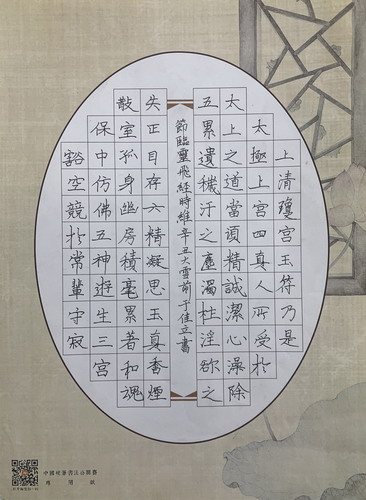 上清瓊宮玉符乃是
太極上宮四真人所受於
太上之道當須精誠潔心澡除
五累遺穢汙之塵濁杜淫欲之
節臨靈飛經時維辛丑大雪前于佳立書
失正目存六精凝思玉真香煙
散室孤身幽房積毫累著和魂
保中仿佛五神遊生三宮
豁空競於常輩守寂
中國硬筆書法
用紙